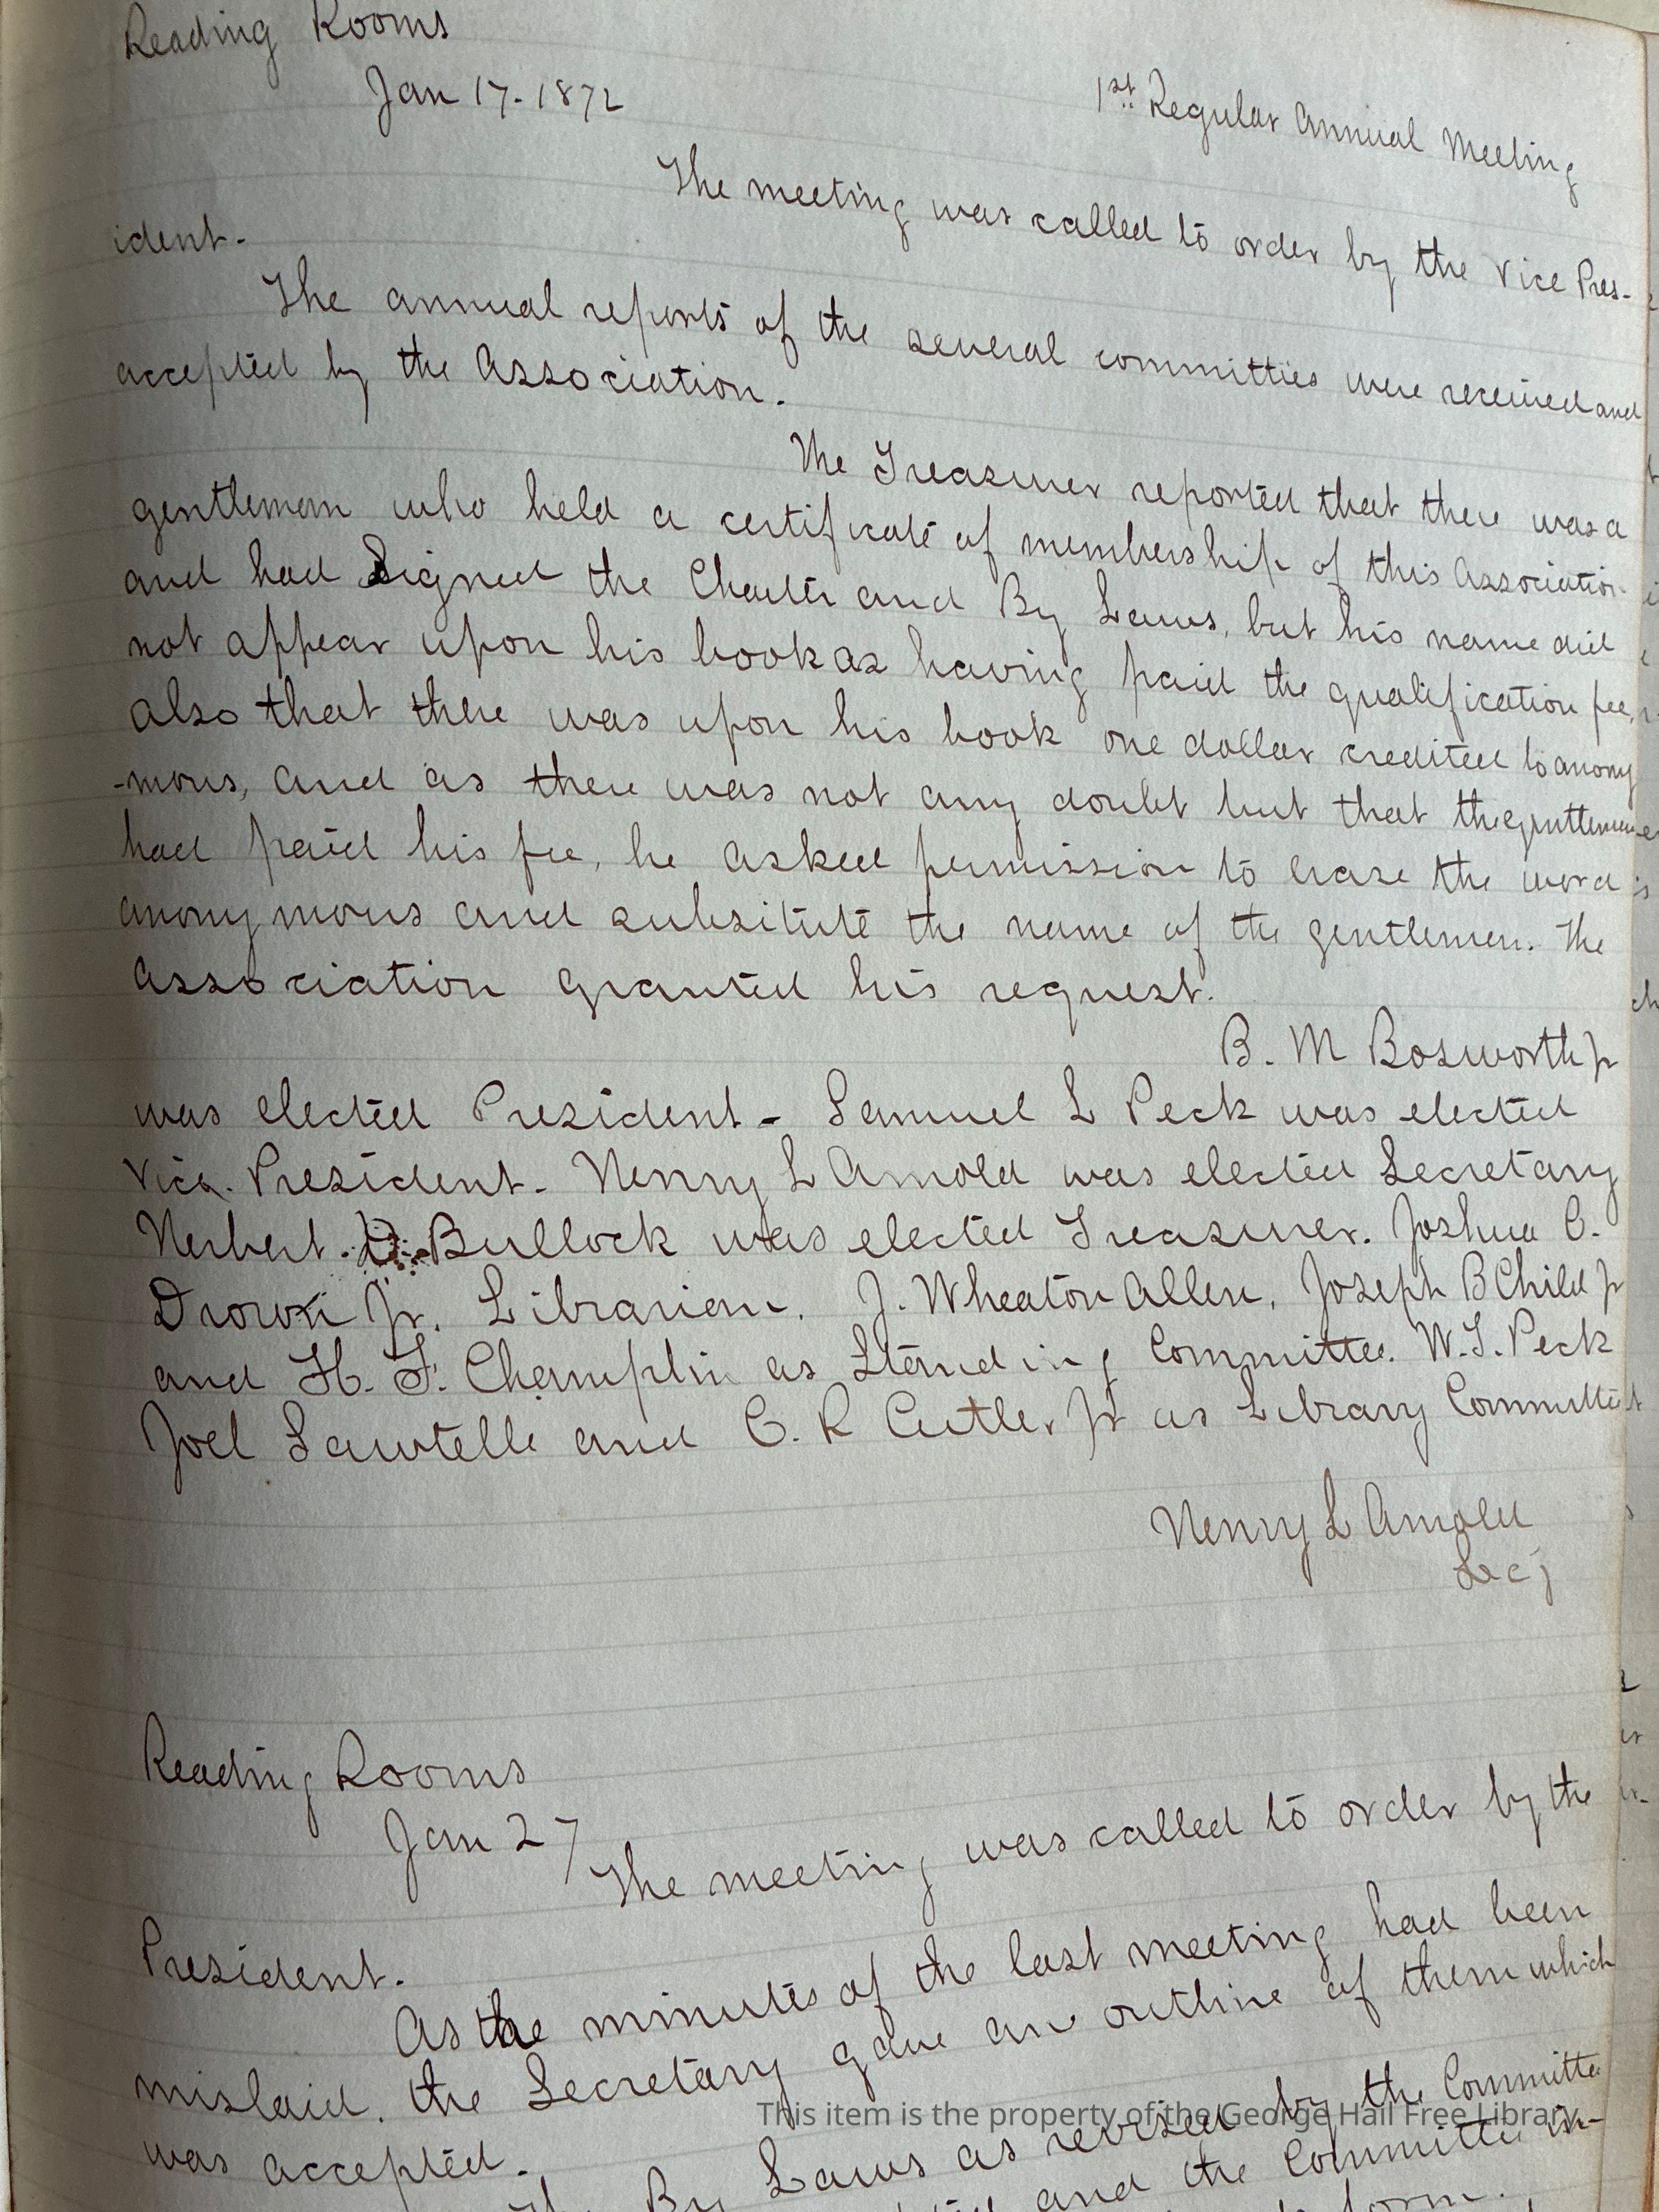 Reading Rooms
Jan 17-1872
1st Regular Annual Meeting
The meeting was called to order by the Vice Pres-
ident-
The annual reports of the several committies were received and
accepted by the Association.
The Treasurer reported that there was a
gentleman who held a certificate of membership of this Association
and had signed the Charter and By Laws, but his name did
not appear upon his book as having paid the qualification fee,
also that there was upon his book one dollar credited to anony
-mous, and as there was not any doubt but that the gentleman
had paid his fee, he asked permission to erase the word
anonymous and subsitute the name of the gentlemen. The
Association granted his request.
B. M Bosworth Jr
was elected President - Samuel L Peck was elected
Vice. President- Henry L Arnold was elected Secretary
Herbert. D. Bullock was elected Treasurer. Joshua C.
Drown Jr. Librarian. J. Wheaton Allen, Joseph B Child Jr
and H. F. Champlin as Standing Committee. W. T. Peck
Joel Sawtelle and C. R Cutler Jr as Library Committee
Henry L Arnold
Secy
Reading Rooms
Jan 27
The meeting was called to order by the
President.
As the minutes of the last meeting had been
mislaid, the Secretary gave an outline of them which
was accepted.
The By Laws as revised by the Committee
and the Committee in-
form.
This item is the property of the George Hail Free Library.